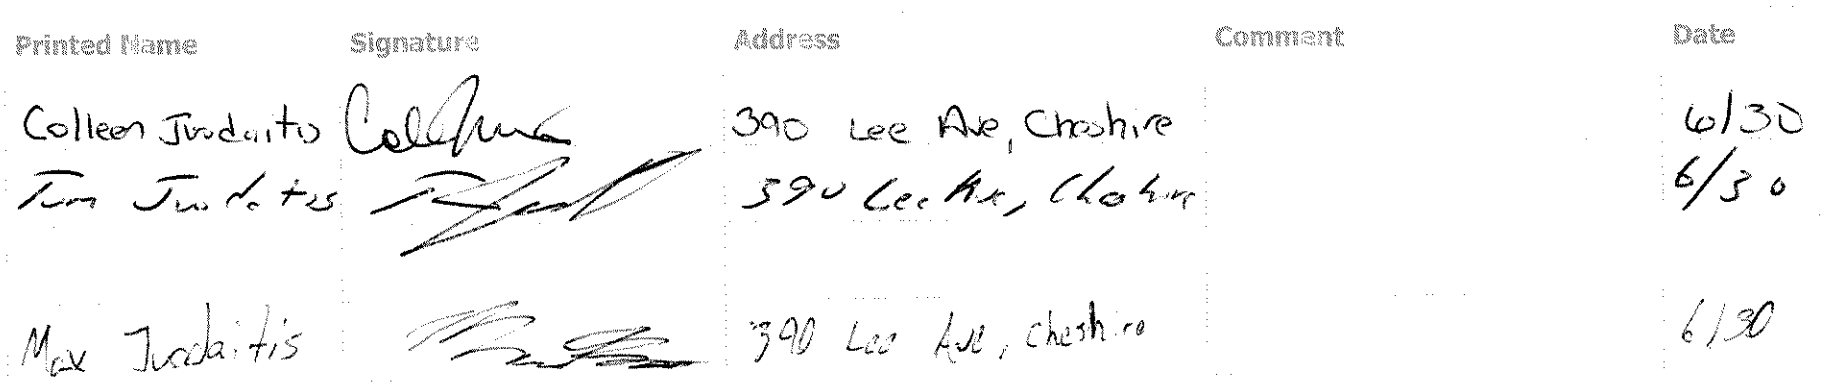 Printed Name Signature Address Comment Date
Colleen Juodaitis 390 Lee Ave, Cheshire 6/30
Tim Juodaitis 390 Lee Ave, Cheshire 6/30
Max Juodaitis 390 Lee Ave, Cheshire 6/30